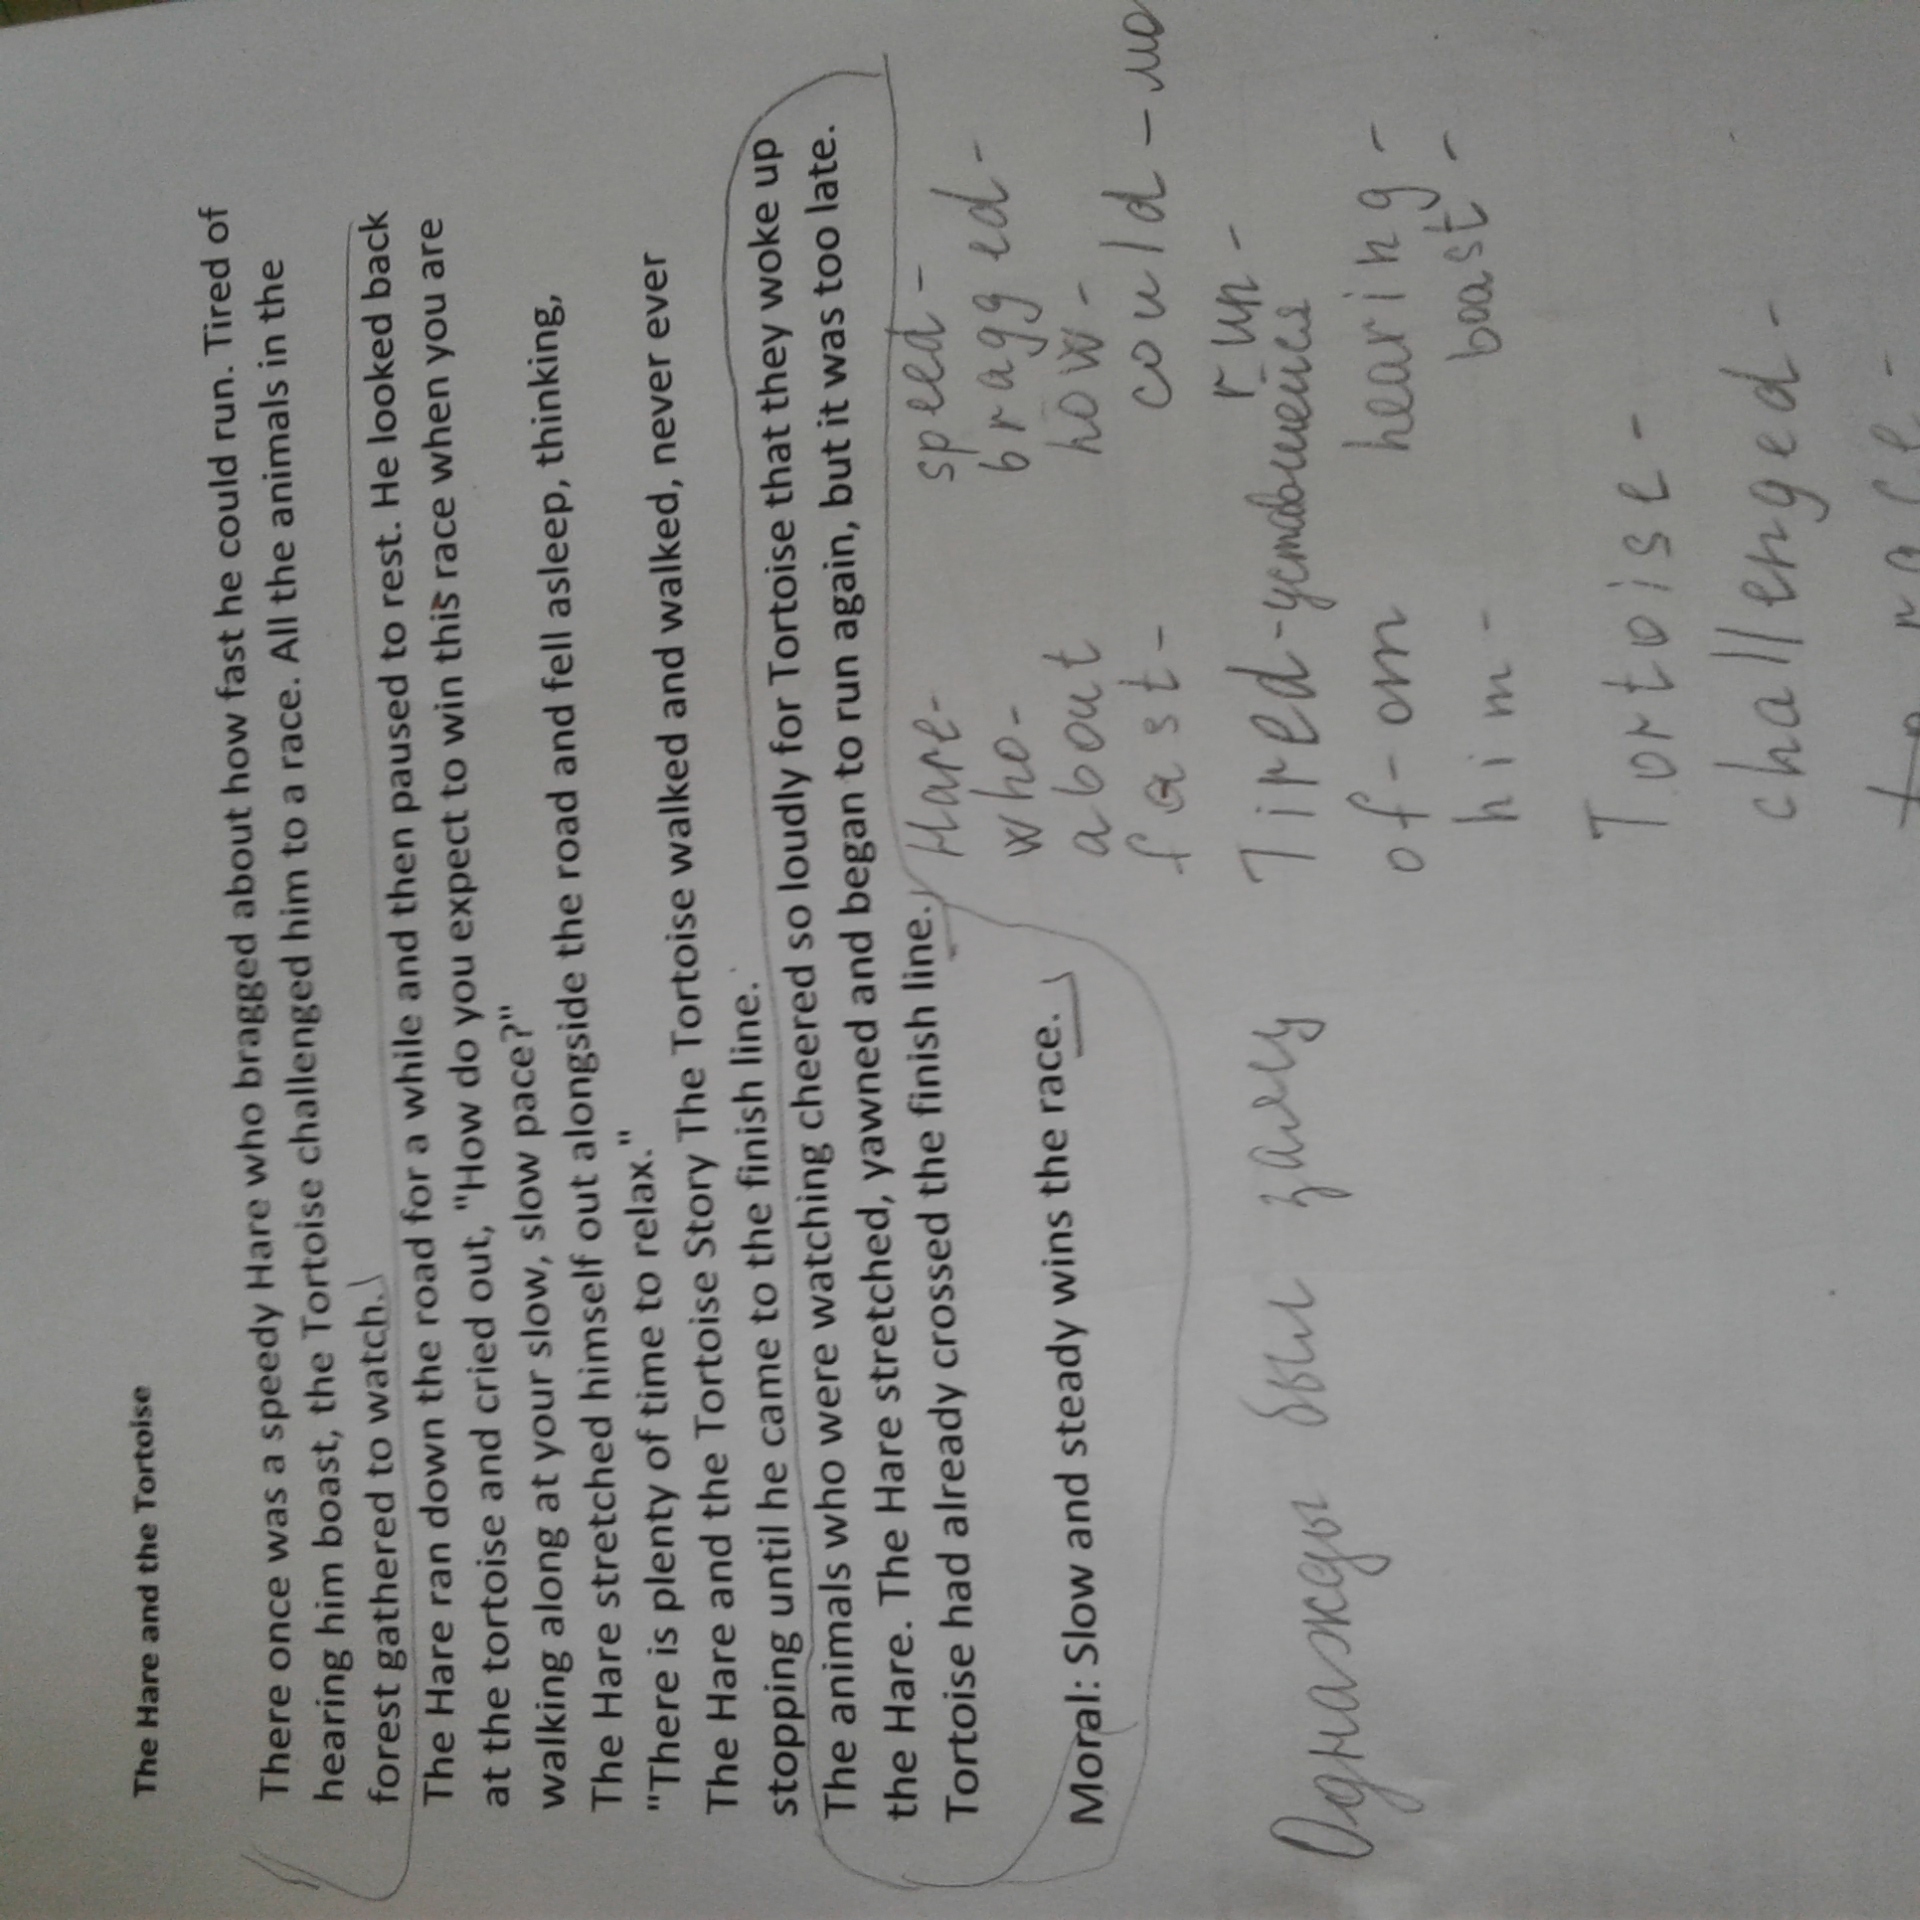 The Hare and the Tortoise
There once was a speedy Hare who bragged about how fast he could run. Tired of
hearing him boast, the Tortoise challenged him to a race. All the animals in the
forest gathered to watch.
The Hare ran down the road for a while and then paused to rest. He looked back
at the tortoise and cried out, "How do you expect to win this race when you are
walking along at your slow, slow pace?"
The Hare stretched himself out alongside the road and fell asleep, thinking,
"There is plenty of time to relax."
The Hare and the Tortoise Story The Tortoise walked and walked, never ever
stopping until he came to the finish line.
The animals who were watching cheered so loudly for Tortoise that they woke up
the Hare. The Hare stretched, yawned and began to run again, but it was too late.
Tortoise had already crossed the finish line.
Moral: Slow and steady wins the race.
Hare- speed-
who- bragged-
about how-
fast- could-
Tired- run-
of-от hearing-
him- boast-
Однажды был заяц
Tortoise-
challenged-